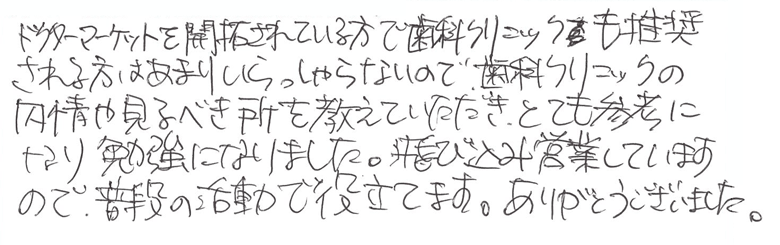 ドクターマーケットを開拓されている方で歯科クリニックも推奨
される方はあまりいらっしゃらないので、歯科クリニックの
内情や見るべき所を教えていただき、とても参考に
なり勉強になりました。飛び込み営業しています
ので、普段の活動で役立てます。ありがとうございました。